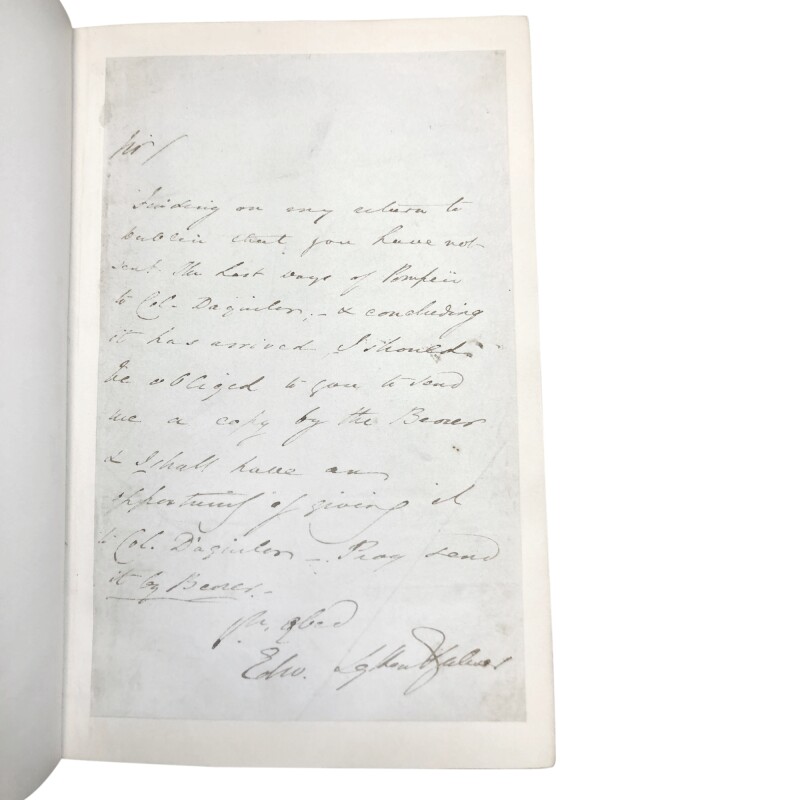 Sir/
Finding on my return to
Dublin that you have not
sent The Last Days of Pompeii
to Col. Daguilar, - & concluding
it has arrived I should
be obliged to you to send
me a copy by the Bearer
& I shall have an
opportunity of giving it
to Col. D'aguilar -. Pray send
it by Bearer. -
Yr. obed
Edw. Lytton Bulwer